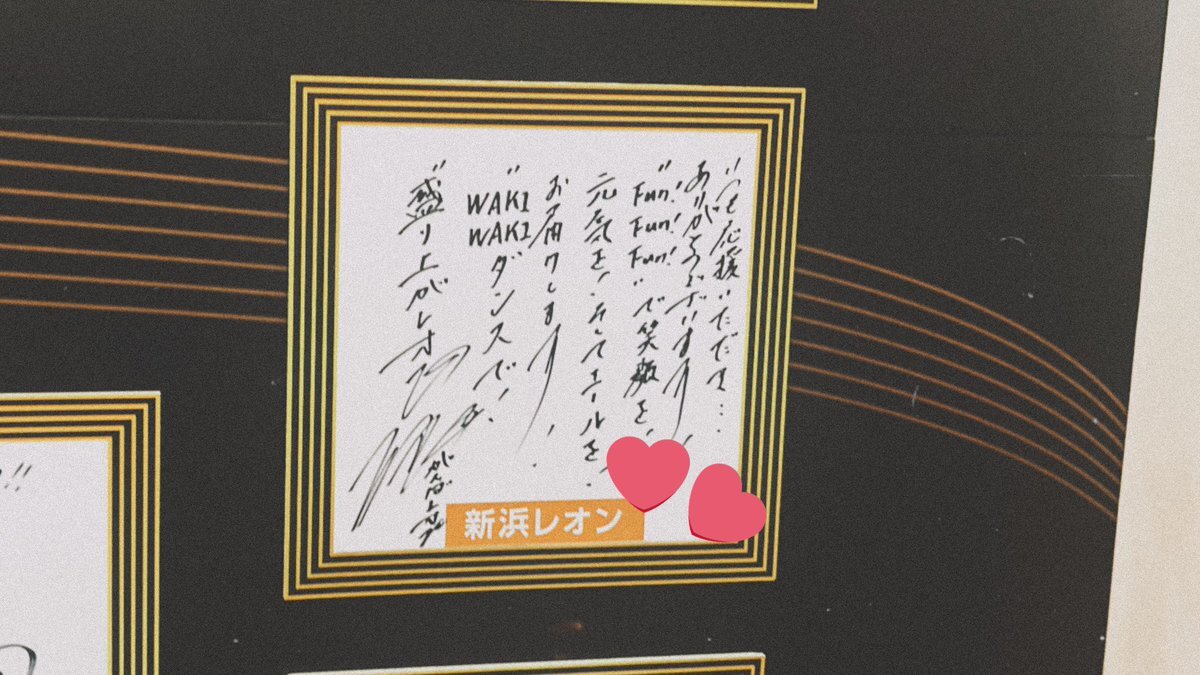 いつも応援いただき…
ありがとうございます!
"Fun! Fun! Fun!"で笑顔を、
元気を、そしてエールを
お届けします!
WAKI WAKI ダンスで、
盛り上がレオン
新浜レオン